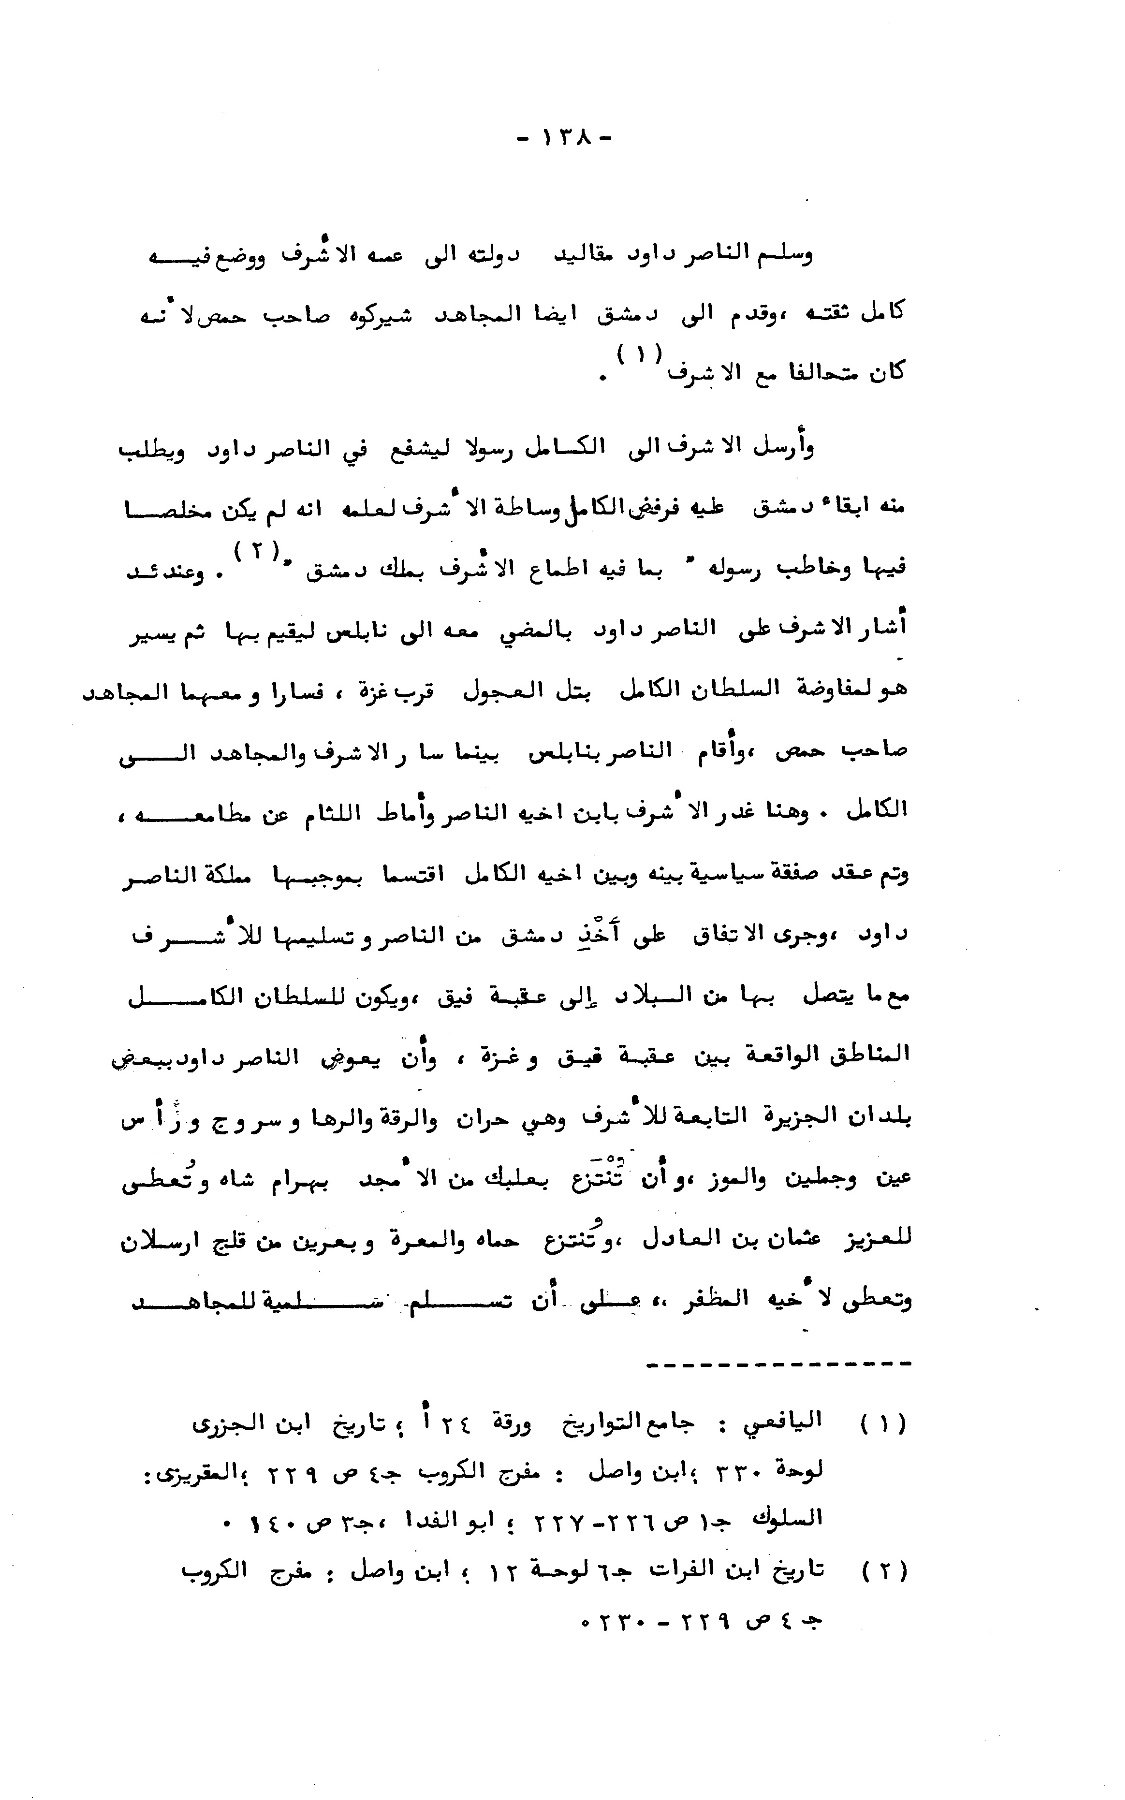 - ١٣٨ -
وسلم الناصر داود مقاليد دولته الى عمه الأشرف ووضع فيه
كامل ثقته ،وقدم الى دمشق ايضا المجاهد شيركوه صاحب حمص لأنه
كان متحالفا مع الاشرف (١) .
وأرسل الاشرف الى الكامل رسولا ليشفع في الناصر داود ويطلب
منه ابقاء دمشق عليه فرفض الكامل وساطة الأشرف لعلمه انه لم يكن مخلصا
فيها وخاطب رسوله " بما فيه اطماع الأشرف بملك دمشق " (٢) . وعندئد
أشار الاشرف على الناصر داود بالمضي معه الى نابلس ليقيم بها ثم يسير
هو لمفاوضة السلطان الكامل بتل العجول قرب غزة ، فسارا ومعهما المجاهد
صاحب حمص ،وأقام الناصر بنابلس بينما سار الاشرف والمجاهد الى
الكامل . وهنا غدر الأشرف بابن اخيه الناصر وأماط اللثام عن مطامعه ،
وتم عقد صفقة سياسية بينه وبين اخيه الكامل اقتسما بموجبها مملكة الناصر
داود ،وجرى الاتفاق على أَخْذِ دمشق من الناصر وتسليمها للأشرف
مع ما يتصل بها من البلاد إلى عقبة فيق ،ويكون للسلطان الكامل
المناطق الواقعة بين عقبة فيق وغزة ، وأن يعوض الناصر داود ببعض
بلدان الجزيرة التابعة للأشرف وهي حران والرقة والرها وسروج ورأس
عين وجملين والموز ،وأن تُنْتَزع بعلبك من الأمجد بهرام شاه وتُعطى
للعزيز عثمان بن العادل ،وتُنتزع حماه والمعرة وبعرين من قلج ارسلان
وتعطى لأخيه المظفر ،، على أن تسلم سلمية للمجاهد
---------------
(١) اليافعي : جامع التواريخ ورقة ٢٤ أ ؛ تاريخ ابن الجزرى
لوحة ٣٣٠ ؛ابن واصل : مفرج الكروب جـ٤ ص ٢٢٩ ؛المقريزى:
السلوك جـ١ ص ٢٢٦-٢٢٧ ؛ ابو الفدا ،جـ٣ ص ١٤٠ .
(٢) تاريخ ابن الفرات جـ٦ لوحة ١٢ ؛ ابن واصل : مفرج الكروب
جـ ٤ ص ٢٢٩ - ٢٣٠.